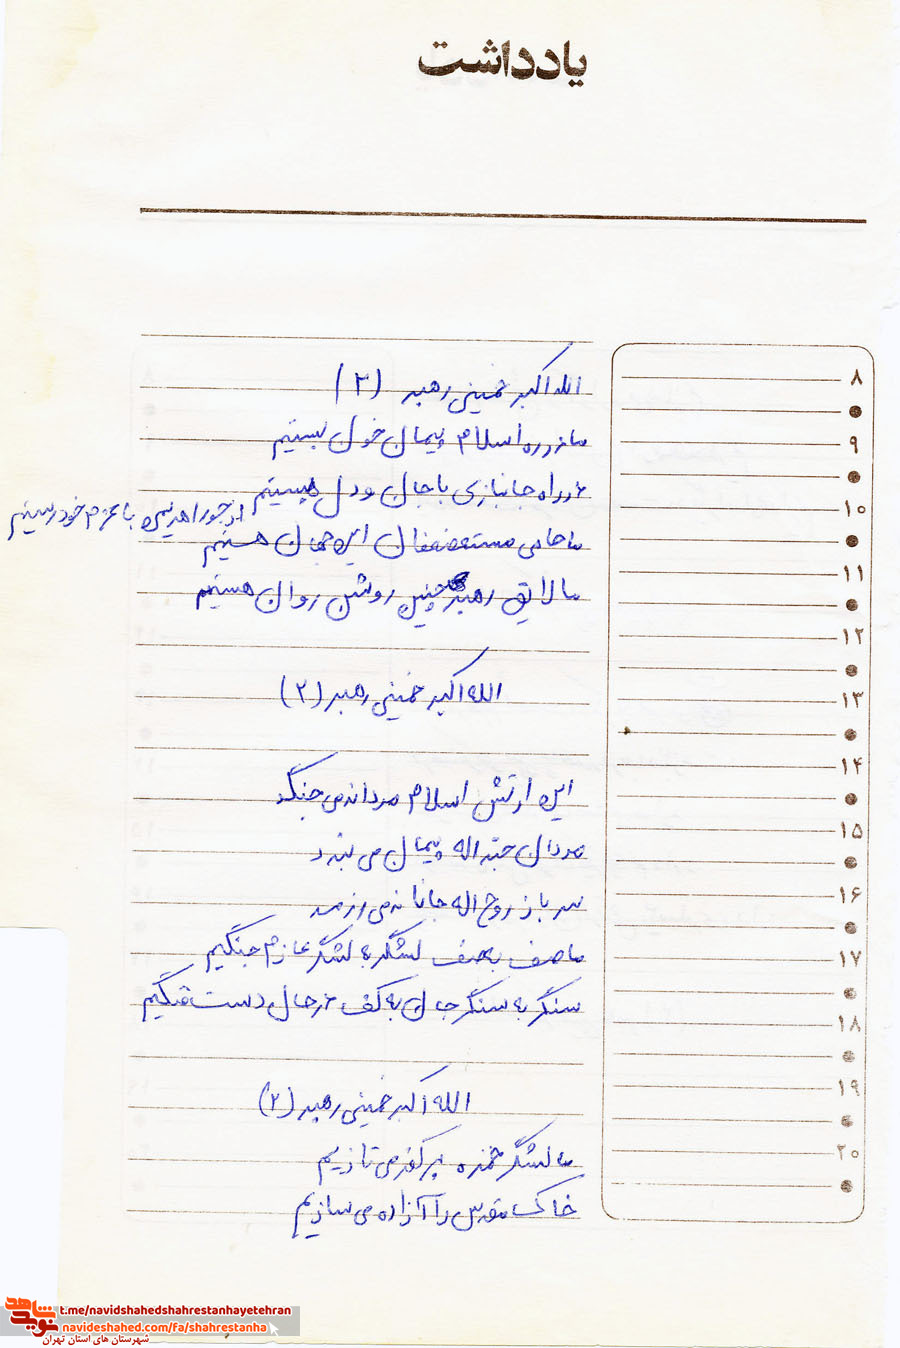 یادداشت
الله اکبر خمینی رهبر (۲)
ما در ره اسلام پیمان خون بستیم
در راه جانبازی با جان و دل هستیم
از جور اهریمن با عزم خود رستیم
ما حامی مستضعفان این جهان هستیم
ما لایق رهبر چنین روشن روان هستیم
الله اکبر خمینی رهبر (۲)
این ارتش اسلام مردانه می جنگد
مردان حزب اله پیمان می بندد
سرباز روح اله جانانه می رزمد
ما صف به صف لشگر به لشگر عازم جنگیم
سنگر به سنگر جان به کف در حال دست
الله اکبر خمینی رهبر (۲)
ما لشگر حمزه بر کفر می تازیم
خاک قدس را آزاده می سازیم
۸
۹
۱۰
۱۱
۱۲
۱۳
۱۴
۱۵
۱۶
۱۷
۱۸
۱۹
۲۰
نوید شاهد
t.me/navidshahedshahrestanhayetehran
navideshahed.com/fa/shahrestanha
شهرستان های استان تهران